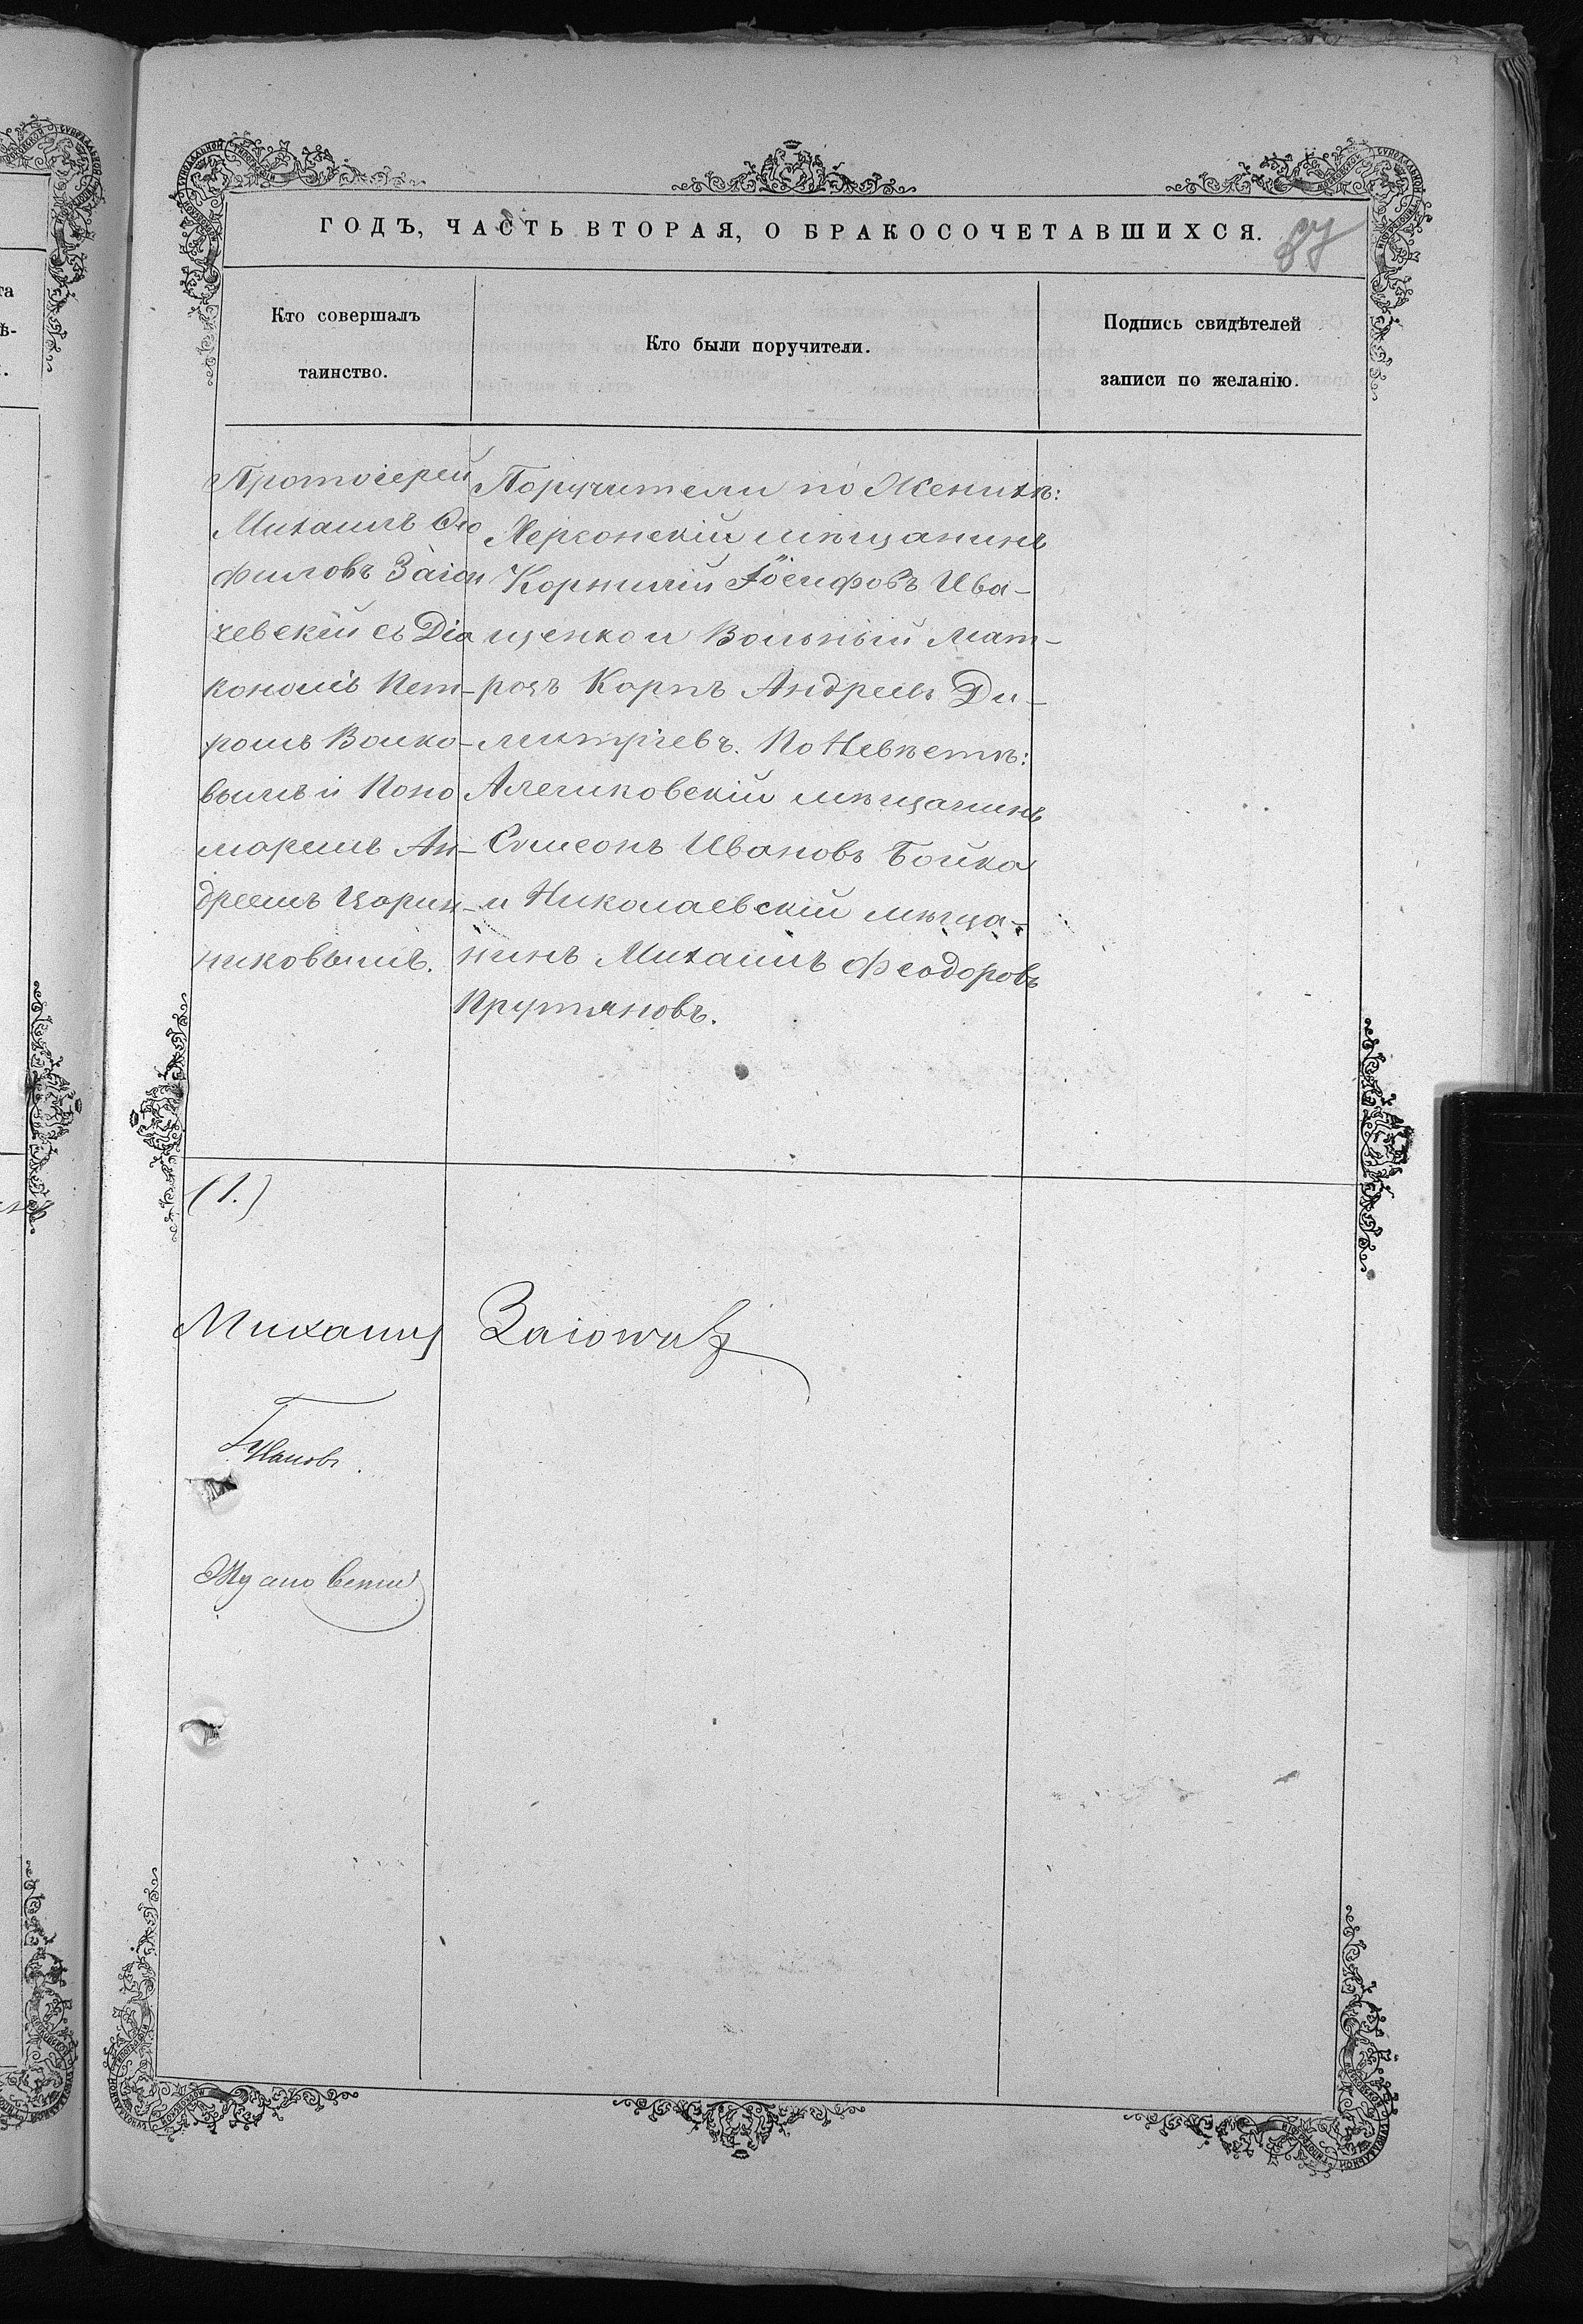 ГОДЪ, ЧАСТЬ ВТОРАЯ, О БРАКОСОЧЕТАВШИХСЯ.
87
Кто совершалъ
таинство.
Кто были поручители.
Подпись свидѣтелей
записи по желанію.
Протоіерей
Михаилъ Ѳео
филовъ Заіон
чевскій съ Діа
кономъ Пет-
ромъ Волко-
вымъ и Поно
маремъ Ан-
дреемъ Царин-
никовымъ.
Поручители по Женихѣ:
Херсонскій мѣщанинъ
Корнилій Іосифовъ Ива-
щенко и Вольный мат-
росъ Карпъ Андреевъ Ди-
митріевъ. По Невѣстѣ:
Алешковскій мѣщанинъ
Симеонъ Ивановъ Бойко
и Николаевскій мѣща-
нинъ Михаилъ Феодоровъ
Прутяновъ.
(1.)
Михаилъ